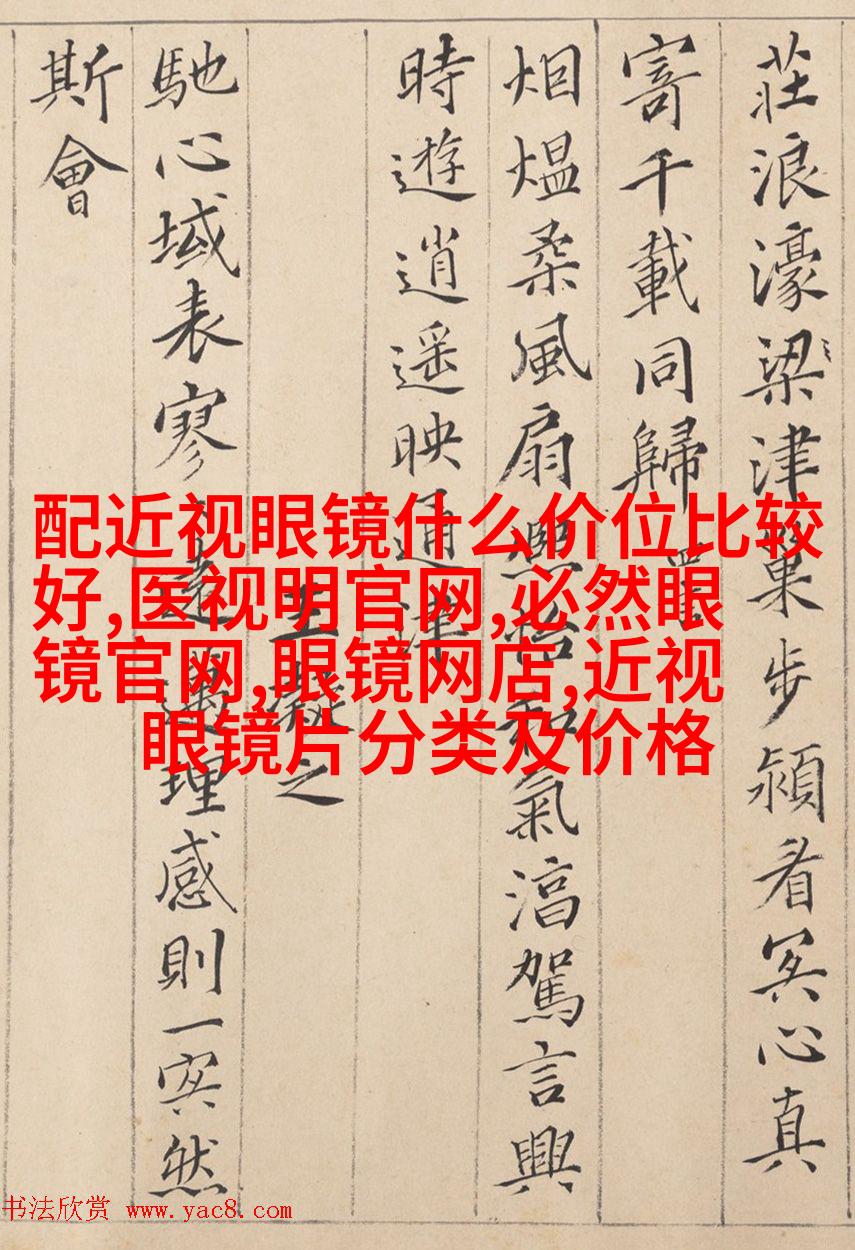 莊浪濠梁津巢步潁看冥心真
寄千載同歸
烟熅柔風扇熙怡和氣淳駕言興
時遊逍遥映通津
王凝之
馳心域表寥〻遠邁理感則一冥然
斯會
配近视眼镜什么价位比较
好,医视明官网,必然眼
镜官网,眼镜网店,近视
眼镜片分类及价格
书法欣赏 www.yac8.com